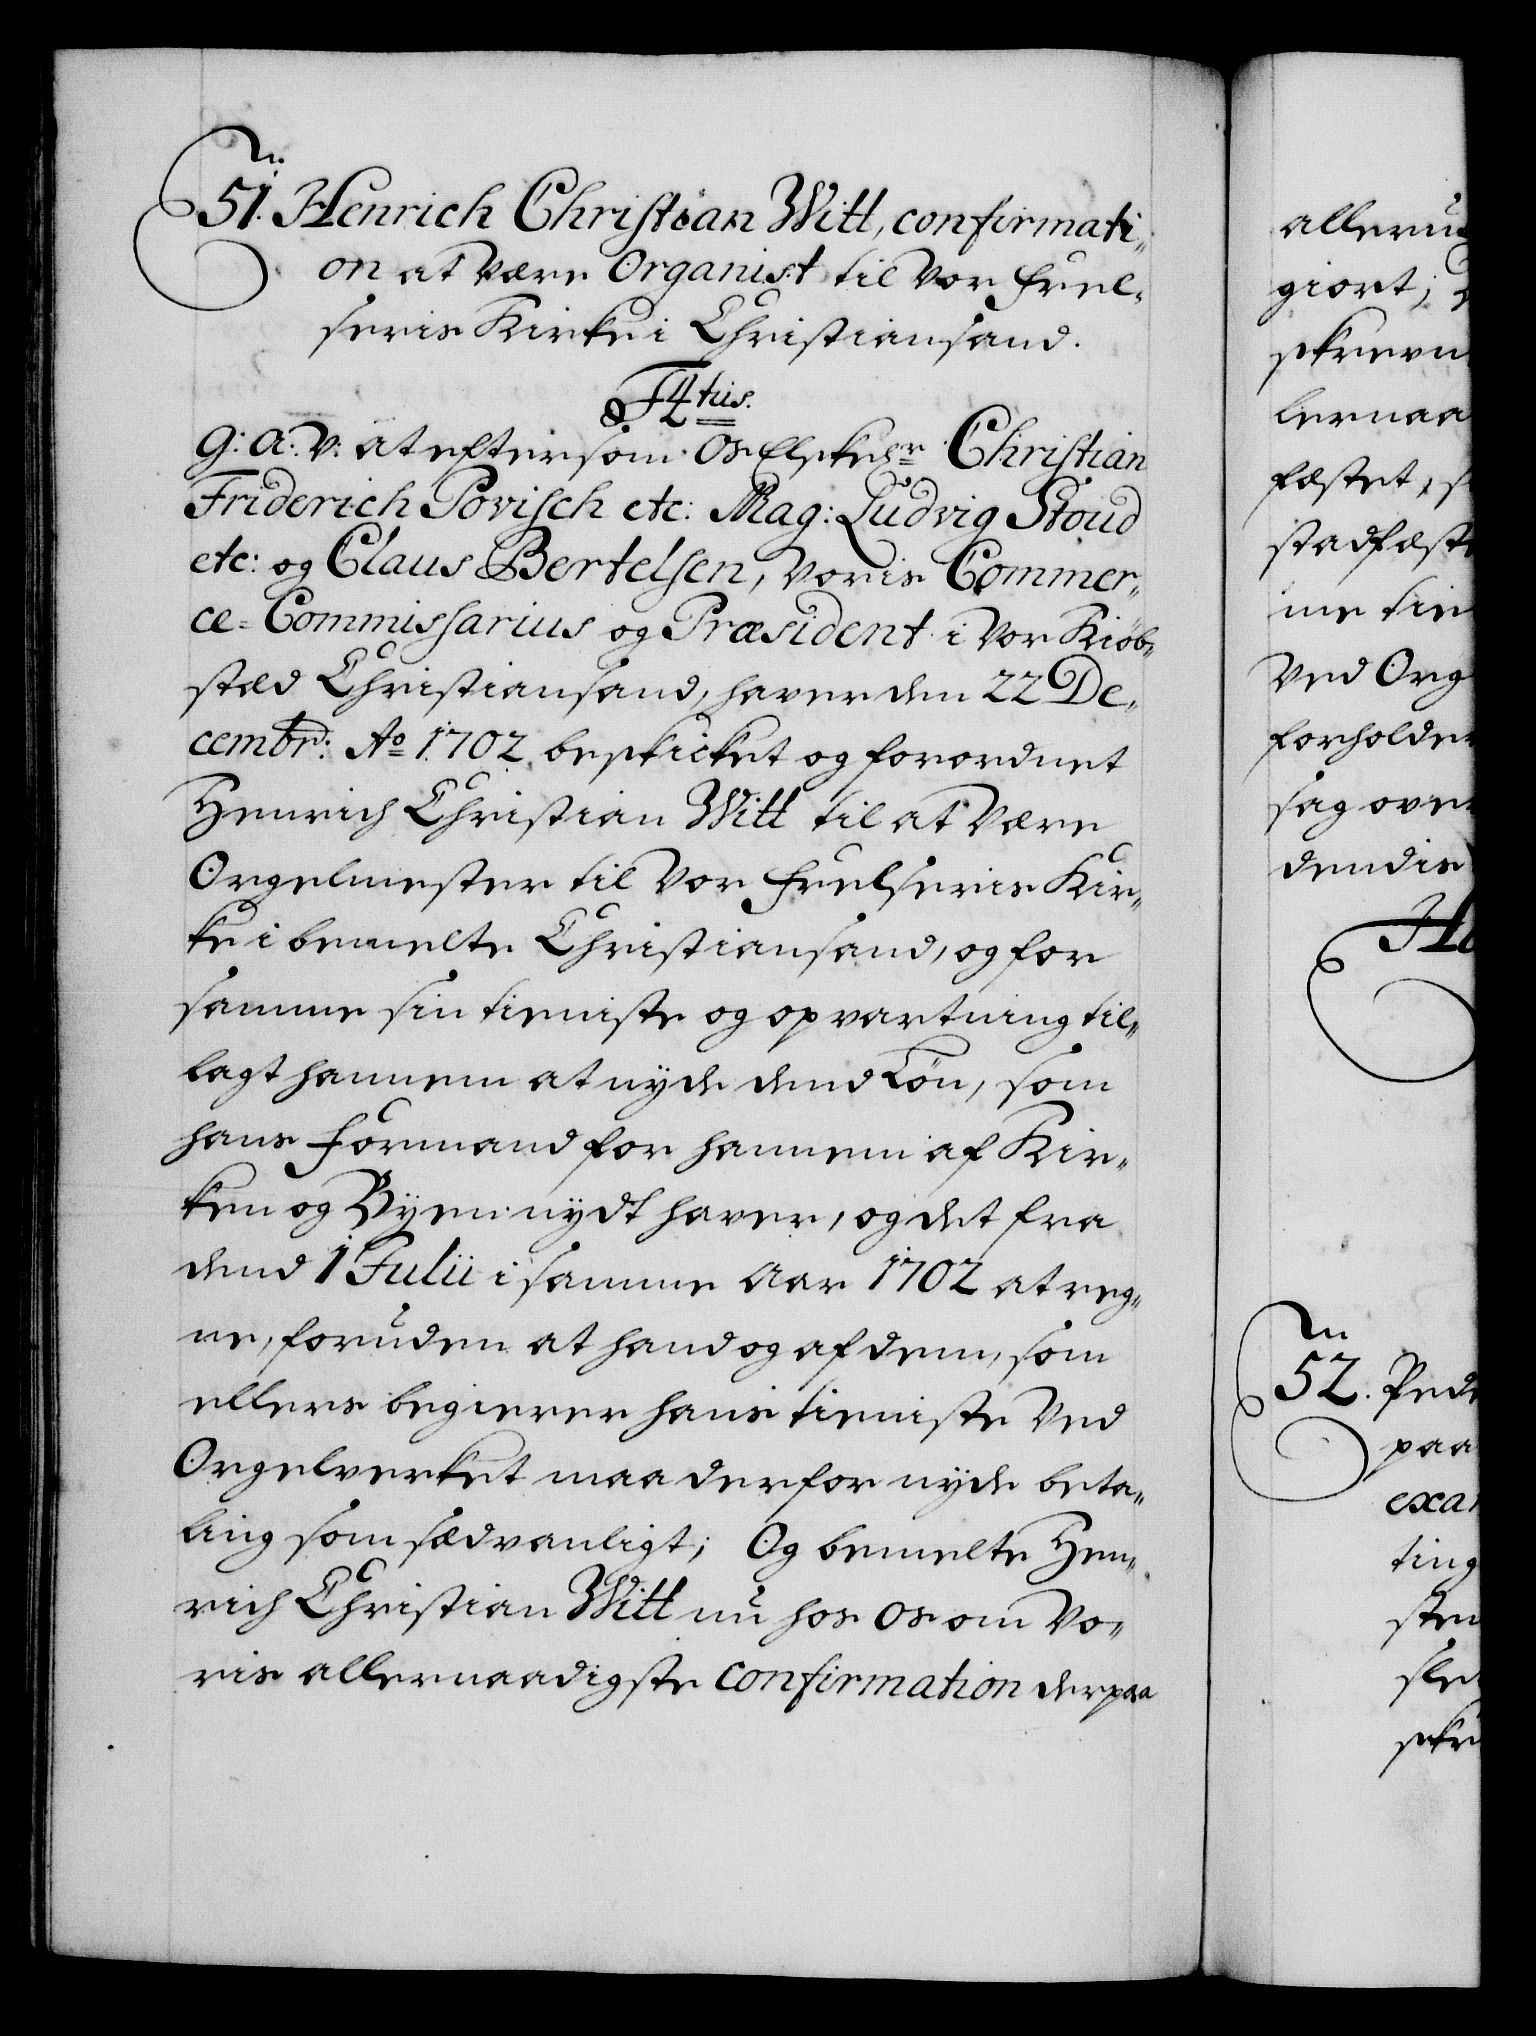 n:
51. Henrich Christian Witt, confirmati„
on at være Organist til Vor Frel„
seris Kirke i Christiansand.
F4tus.
G: A: V: at eftersom Os Elskedr Christian
Friderich Povisch etc: Mag: Ludvig Stoud
etc: og Claus Bertelsen, Voris Commer„
ce=Commissarius og Præsident i Vor Kiøb„
stæd Christiansand, haver den 22 De„
cembr: Ao 1702 beskicket og forordnet
Henrich Christian Witt til at være
Orgelmester til Vor Frelseris Kir„
ke i bemelte Christiansand, og for
samme sin tieniste og opvartning til„
lagt hannem at nyde dend Løn, som
hans Formand for hannem af Kir„
ken og Byen nydt haver, og det fra
dend 1 Julii i samme Aar 1702 at reg„
ne, foruden at hand og af dem, som
ellers begierer hans tieniste ved
Orgelverket maa derfor nyde beta„
ling som sædvanligt; Og bemelte Hen„
rich Christian Witt nu hos Os om Vo„
ris allernaadigste confirmation derpaa
alleru
giort;
skrevn
lernaa
fæstet, s
stadfæst
me tien
Ved Org
forholder
sag over
dendis
n
52. Ped
paa
exa
ting
sten
sle
skr